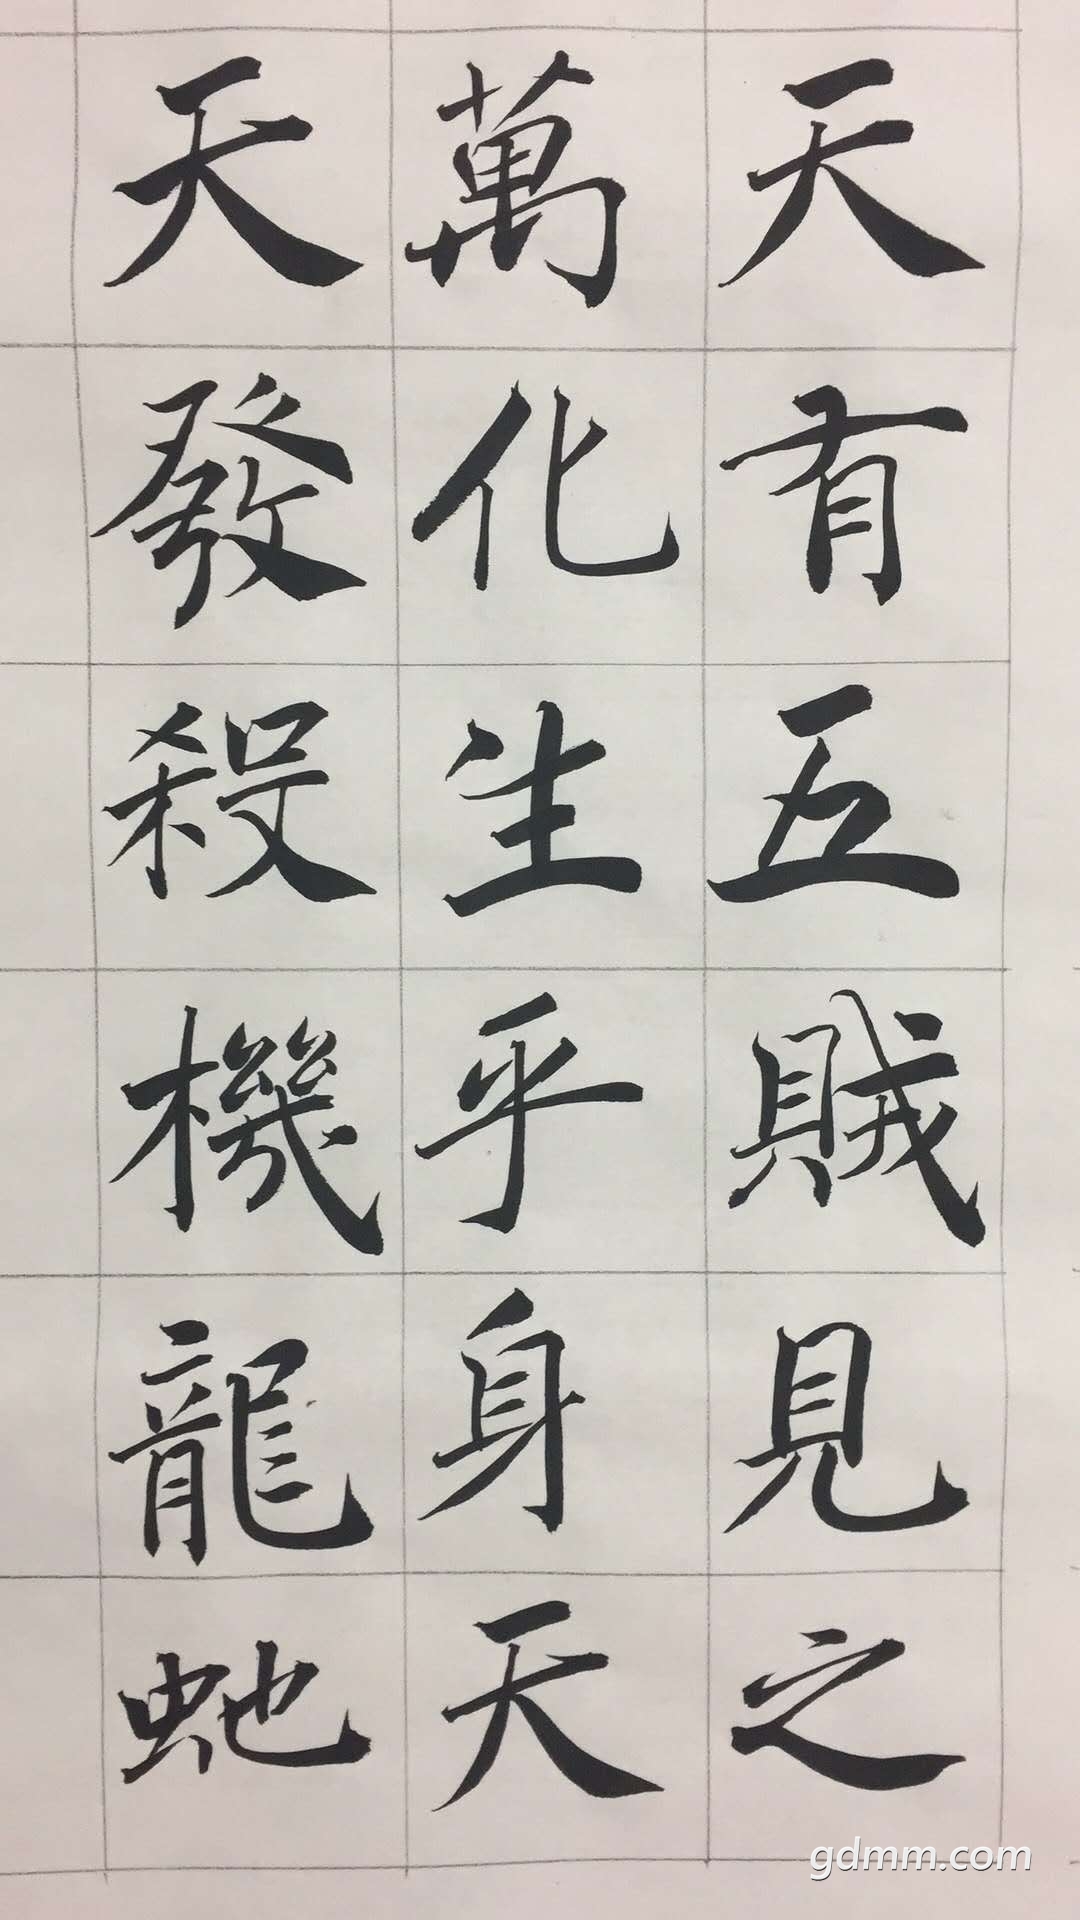 天有五賊見之
萬化生乎身天
天發殺機龍虵
gdmm.com